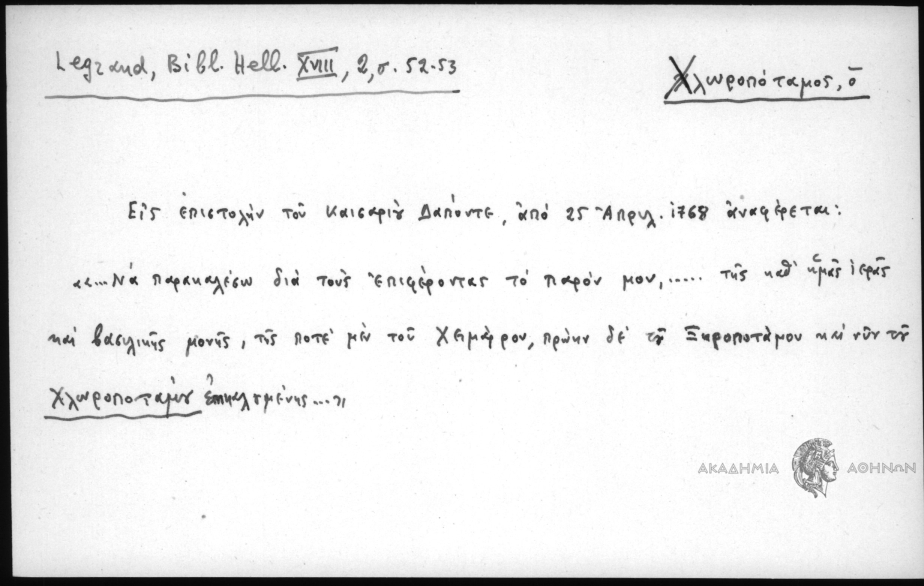 Legrand, Bibl. Hell. XVIII, 2, σ. 52-53
Χλωροπόταμος, ὁ
Εἰς ἐπιστολὴν τοῦ Καισαρίου Δαπόντε, ἀπὸ 25 Ἀπριλ. 1768 ἀναφέρεται:
«...Νὰ παρακαλέσω διὰ τοὺς ἐπιφέροντας τὸ παρόν μου,..... τῆς καθ' ἡμᾶς ἱερᾶς
καὶ βασιλικῆς μονῆς, τῆς ποτὲ μὲν τοῦ Χειμάρρου, πρώην δὲ τοῦ Ξηροποτάμου καὶ νῦν τοῦ
Χλωροποτάμου ἐπικαλουμένης...»
ΑΚΑΔΗΜΙΑ ΑΘΗΝΩΝ